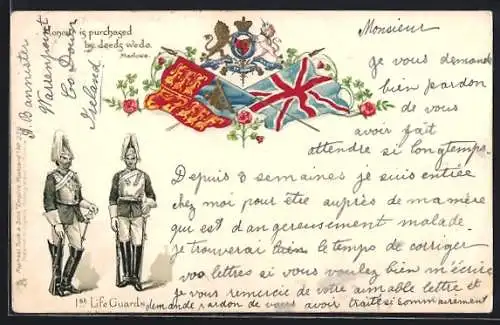 Honour is purchased
by deeds we do.
Marlowe.
J. Bannister
Warrenpoint
Co Down
Ireland
Raphael Tuck & Sons "Empire" Postcard
1st Life Guards.
Monsieur
je vous demande
bien pardon
de vous
avoir fait
attendre si longtemps.
Depuis 3 semaines je suis entrée
chez moi pour être auprès de ma mère
qui est dangereusement malade.
je trouverai bien le temps de corriger
vos lettres si vous voulez bien m'écrire
je vous remercie de votre aimable lettre et
demande pardon de vous avoir traité si sommairement